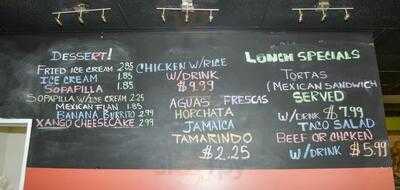 DESSERT!
FRIED ICE CREAM 2.85
ICE CREAM 1.85
SOPAPILLA 1.85
SOPAPILLA W/ICE CREAM 2.25
MEXICAN FLAN 1.85
BANANA BURRITO 2.99
XANGO CHEESECAKE 2.99
CHICKEN W/RICE
W/DRINK
$9.99
AGUAS FRESCAS
HORCHATA
JAMAICA
TAMARINDO
$2.25
LUNCH SPECIALS
TORTAS
(MEXICAN SANDWICH
SERVED
W/DRINK $7.99
TACO SALAD
BEEF OR CHICKEN
W/DRINK $5.99